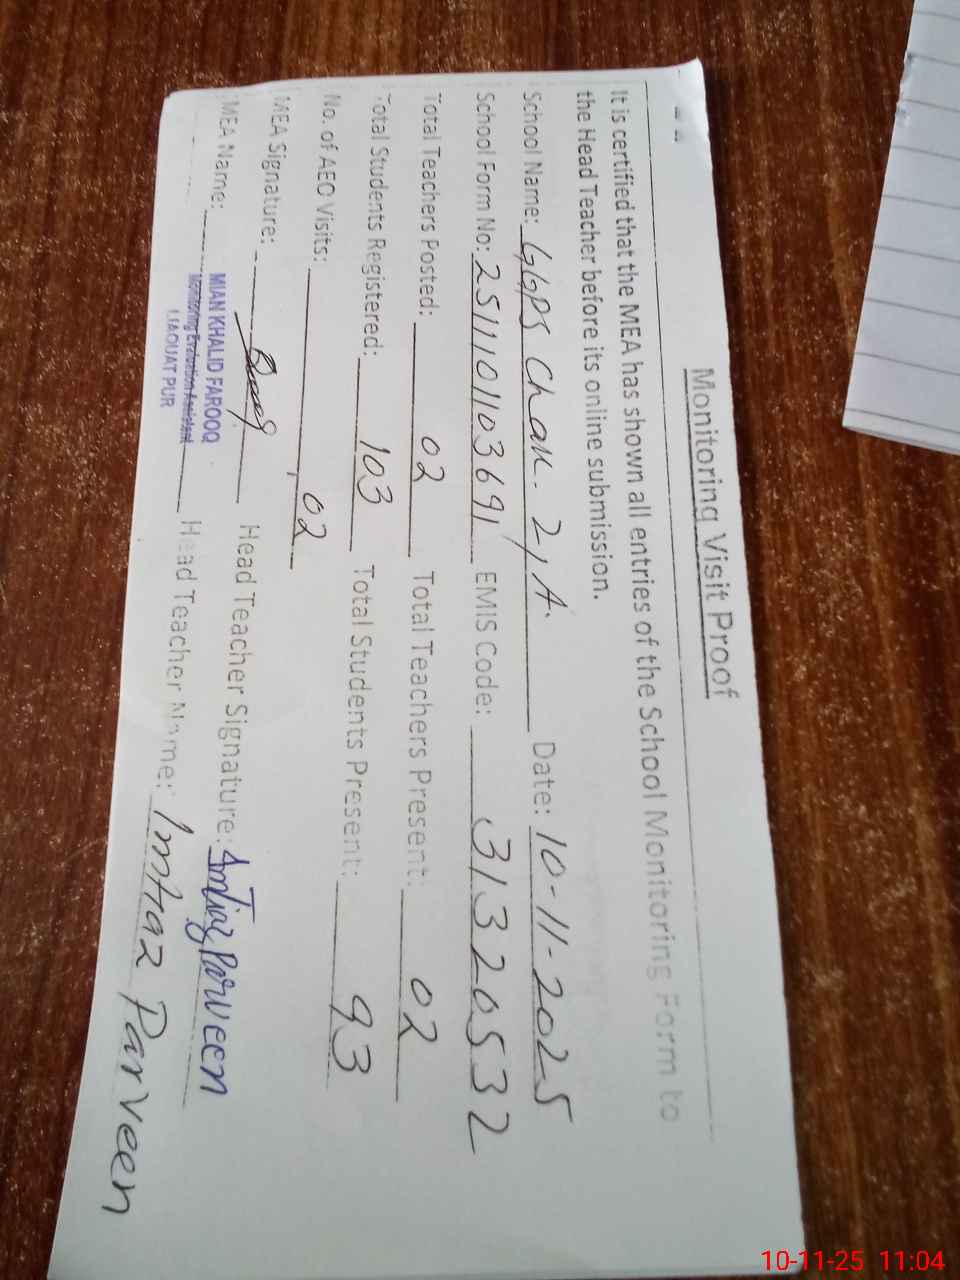 Monitoring Visit Proof
It is certified that the MEA has shown all entries of the School Monitoring Form to
the Head Teacher before its online submission.
School Name: GGPS Chak 21A. Date: 10-11-2025
School Form No: 2511101103691 EMIS Code: 31320532
Total Teachers Posted: 02 Total Teachers Present: 02
Total Students Registered: 103 Total Students Present: 93
No. of AEO Visits: 02
MEA Signature: Head Teacher Signature: Imtiaz Parveen
MEA Name: MIAN KHALID FAROOQ Head Teacher Name: Imtiaz Parveen
Monitoring Evaluation Assistant
LIAQUAT PUR
10-11-25 11:04